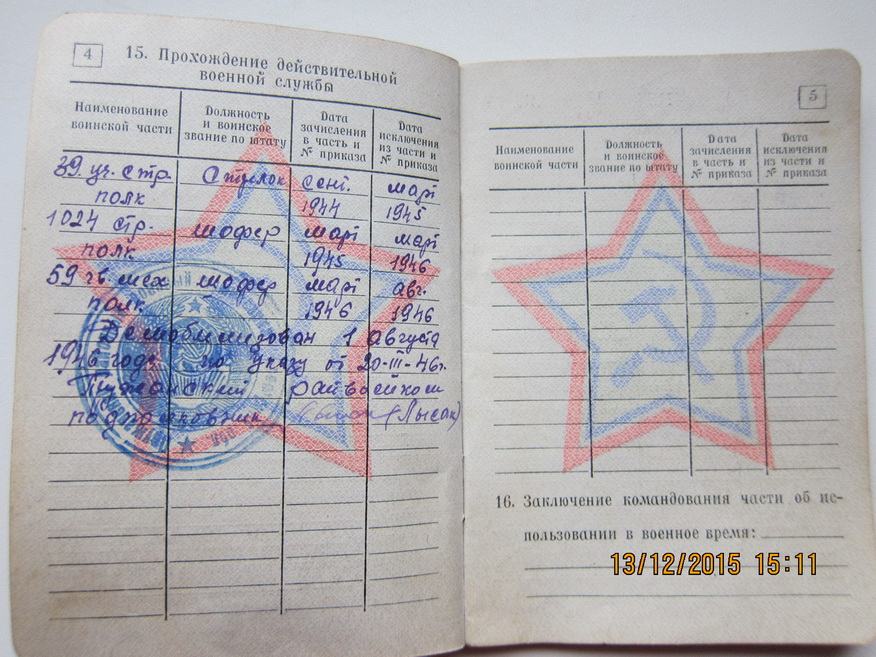 4
15. Прохождение действительной
военной службы
Наименование воинской части
Должность и воинское звание по штату
Дата зачисления в часть и № приказа
Дата исключения из части и № приказа
39 уч. стр. стрелок сент. март
полк 1944 1945
1024 стр. шофер март март
полк 1945 1946
59 гв. мех шофер март авг.
полк 1946 1946
Демобилизован 1 августа
1946 года по указу от 20-III-46г.
райвоенком
подполковник (Лысак)
5
Наименование воинской части
Должность и воинское звание по штату
Дата зачисления в часть и № приказа
Дата исключения из части и № приказа
16. Заключение командования части об ис-
пользовании в военное время:
13/12/2015 15:11